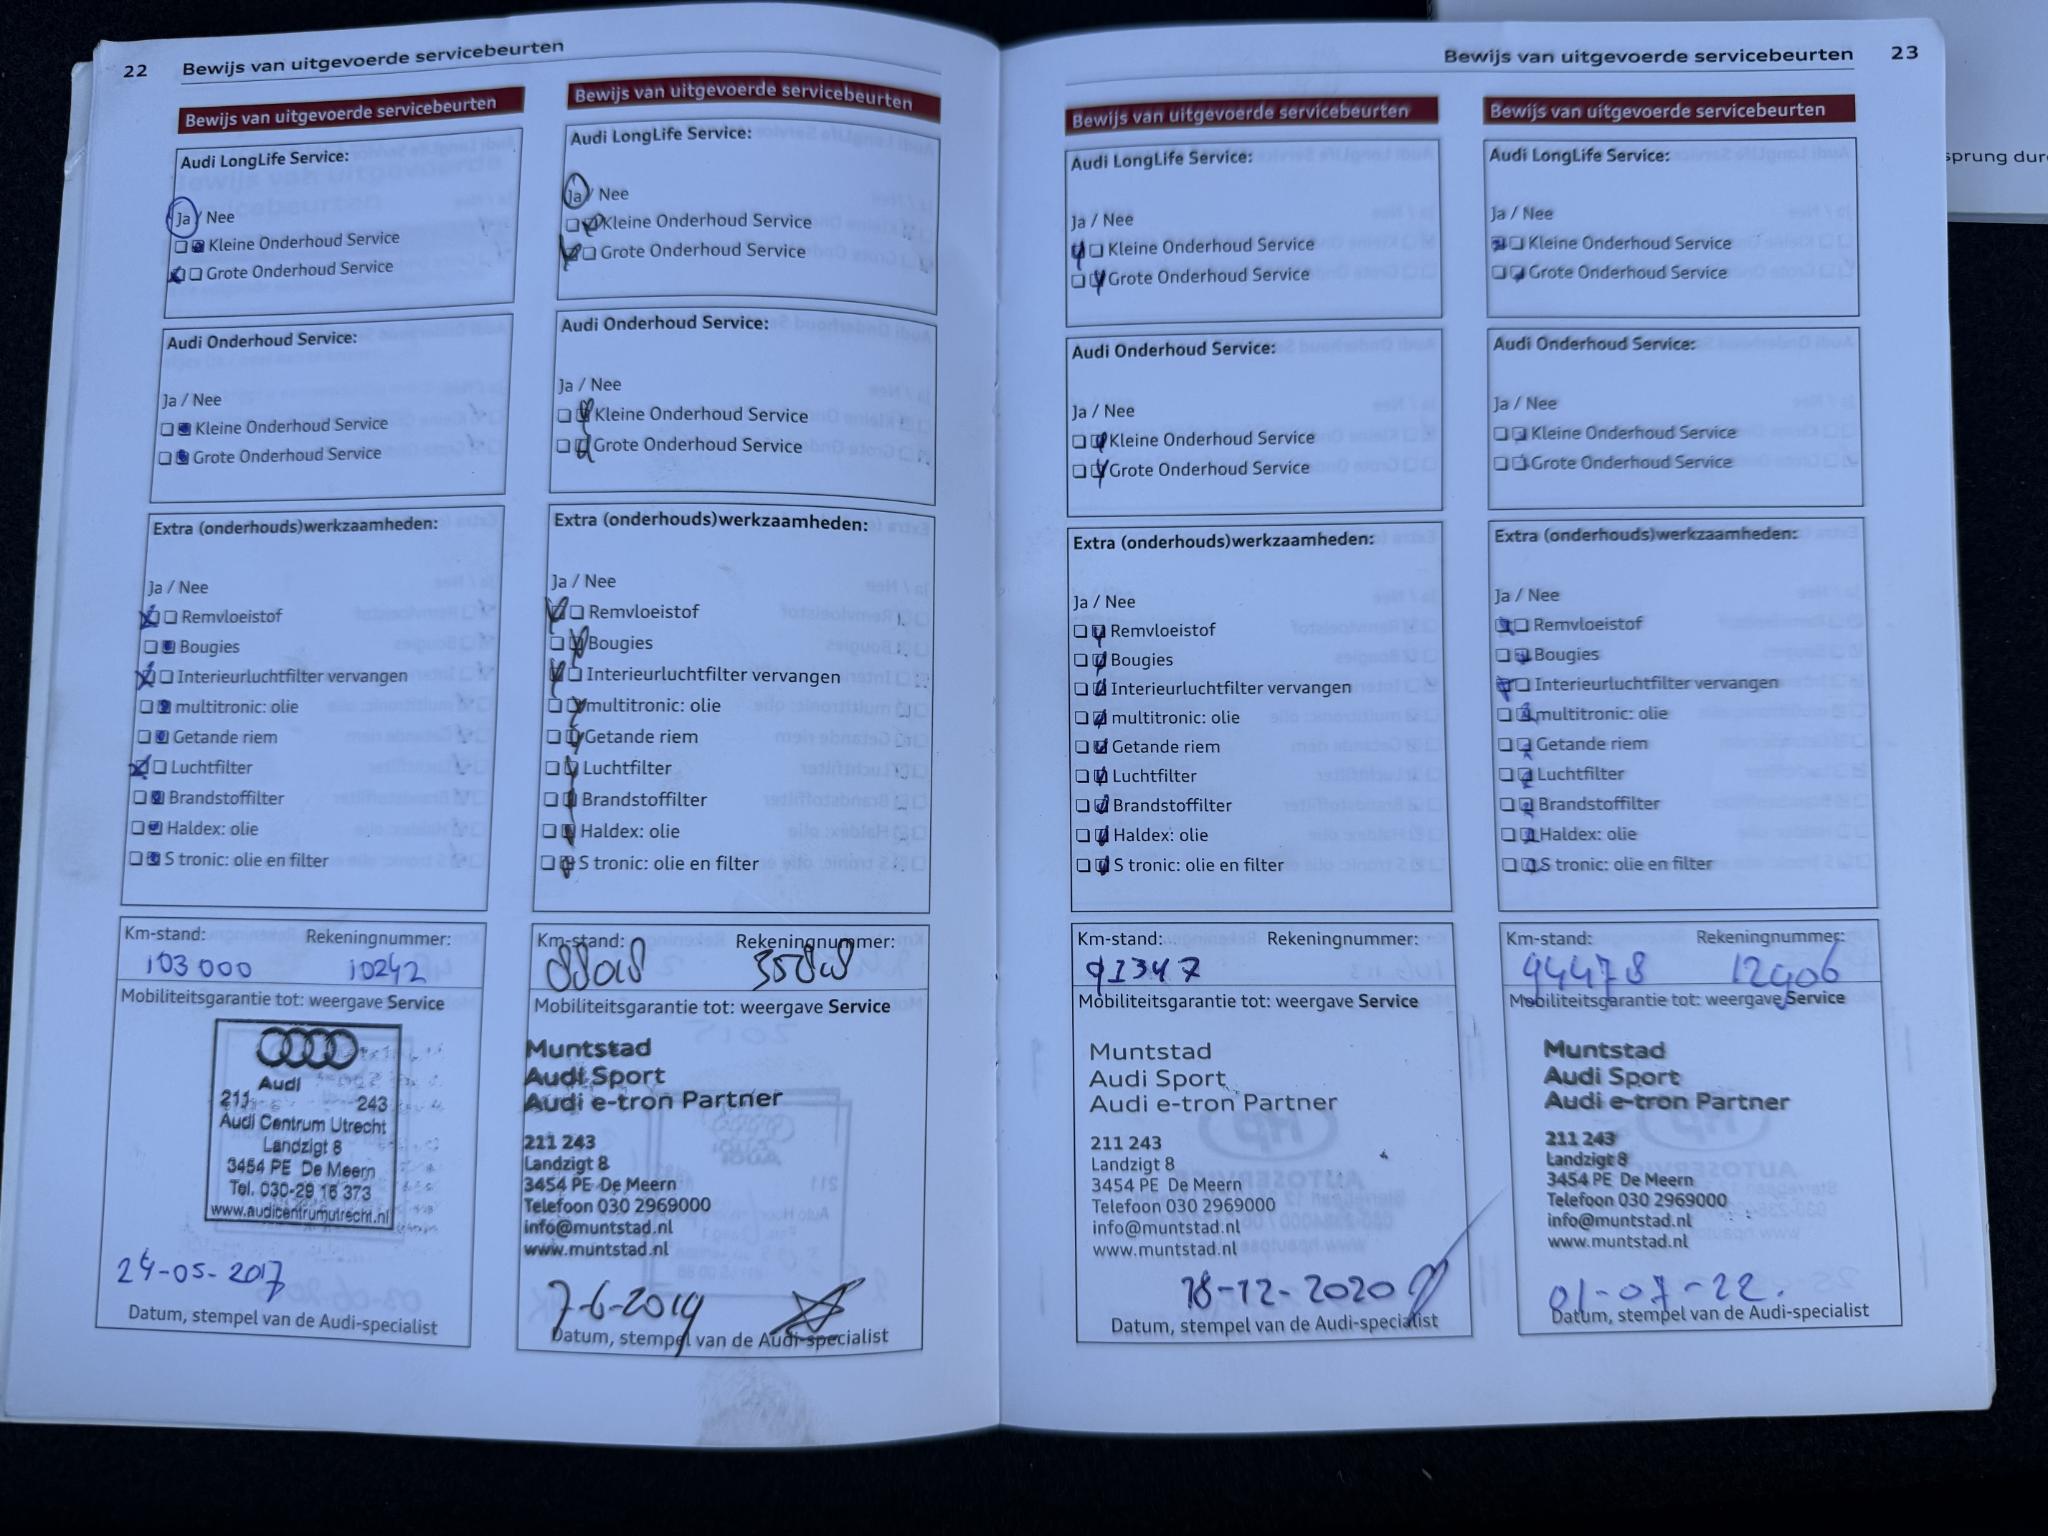 22 Bewijs van uitgevoerde servicebeurten
Bewijs van uitgevoerde servicebeurten
Audi LongLife Service:
Ja / Nee
Kleine Onderhoud Service
Grote Onderhoud Service
Audi Onderhoud Service:
Ja / Nee
Kleine Onderhoud Service
Grote Onderhoud Service
Extra (onderhouds)werkzaamheden:
Ja / Nee
Remvloeistof
Bougies
Interieurluchtfilter vervangen
multitronic: olie
Getande riem
Luchtfilter
Brandstoffilter
Haldex: olie
S tronic: olie en filter
Km-stand: Rekeningnummer:
103 000 10242
Mobiliteitsgarantie tot: weergave Service
Audi
211 243
Audi Centrum Utrecht
Landzigt 8
3454 PE De Meern
Tel. 030-29 16 373
www.audicentrumutrecht.nl
24-05-2017
Datum, stempel van de Audi-specialist
Bewijs van uitgevoerde servicebeurten
Audi LongLife Service:
Ja / Nee
Kleine Onderhoud Service
Grote Onderhoud Service
Audi Onderhoud Service:
Ja / Nee
Kleine Onderhoud Service
Grote Onderhoud Service
Extra (onderhouds)werkzaamheden:
Ja / Nee
Remvloeistof
Bougies
Interieurluchtfilter vervangen
multitronic: olie
Getande riem
Luchtfilter
Brandstoffilter
Haldex: olie
S tronic: olie en filter
Km-stand: Rekeningnummer:
Mobiliteitsgarantie tot: weergave Service
Muntstad
Audi Sport
Audi e-tron Partner
211 243
Landzigt 8
3454 PE De Meern
Telefoon 030 2969000
info@muntstad.nl
www.muntstad.nl
7-6-2019
Datum, stempel van de Audi-specialist
Bewijs van uitgevoerde servicebeurten 23
Bewijs van uitgevoerde servicebeurten
Audi LongLife Service:
Ja / Nee
Kleine Onderhoud Service
Grote Onderhoud Service
Audi Onderhoud Service:
Ja / Nee
Kleine Onderhoud Service
Grote Onderhoud Service
Extra (onderhouds)werkzaamheden:
Ja / Nee
Remvloeistof
Bougies
Interieurluchtfilter vervangen
multitronic: olie
Getande riem
Luchtfilter
Brandstoffilter
Haldex: olie
S tronic: olie en filter
Km-stand: Rekeningnummer:
91347
Mobiliteitsgarantie tot: weergave Service
Muntstad
Audi Sport
Audi e-tron Partner
211 243
Landzigt 8
3454 PE De Meern
Telefoon 030 2969000
info@muntstad.nl
www.muntstad.nl
18-12-2020
Datum, stempel van de Audi-specialist
Bewijs van uitgevoerde servicebeurten
Audi LongLife Service:
Ja / Nee
Kleine Onderhoud Service
Grote Onderhoud Service
Audi Onderhoud Service:
Ja / Nee
Kleine Onderhoud Service
Grote Onderhoud Service
Extra (onderhouds)werkzaamheden:
Ja / Nee
Remvloeistof
Bougies
Interieurluchtfilter vervangen
multitronic: olie
Getande riem
Luchtfilter
Brandstoffilter
Haldex: olie
S tronic: olie en filter
Km-stand: Rekeningnummer:
94478 12906
Mobiliteitsgarantie tot: weergave Service
Muntstad
Audi Sport
Audi e-tron Partner
211 243
Landzigt 8
3454 PE De Meern
Telefoon 030 2969000
info@muntstad.nl
www.muntstad.nl
01-07-22.
Datum, stempel van de Audi-specialist